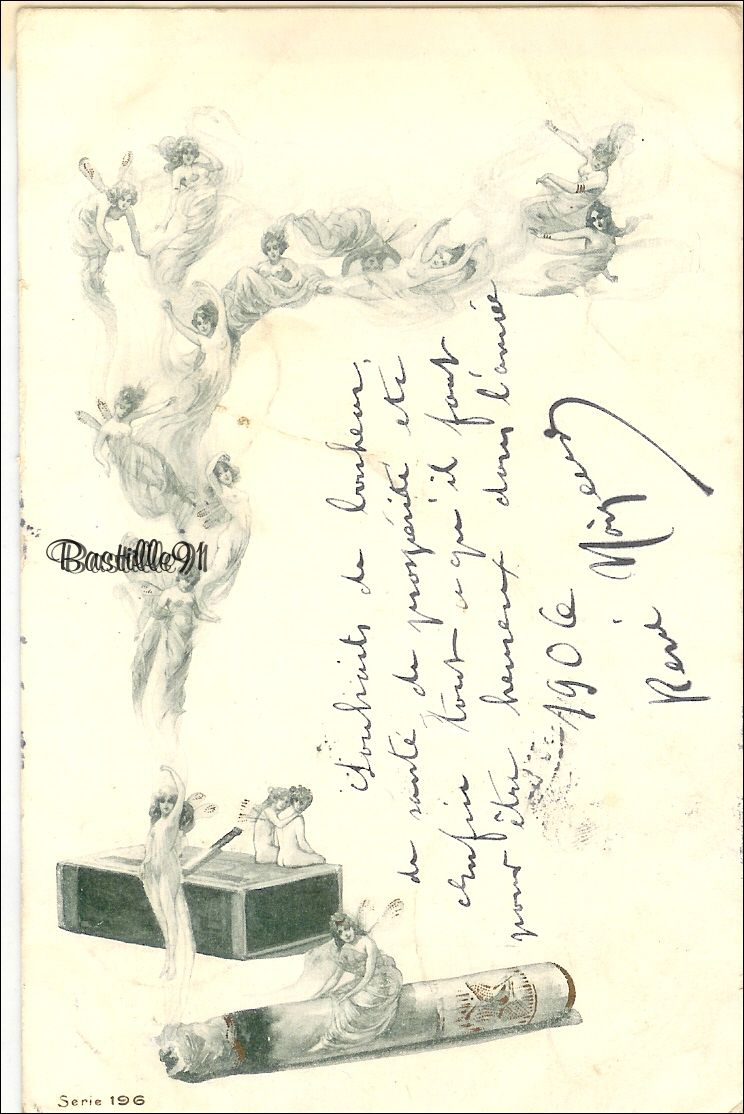 Souhaits de bonheur,
de santé de prospérité etc
enfin tout ce qu'il faut
pour être heureux dans l'année
1906
René
Bastille91
Serie 196